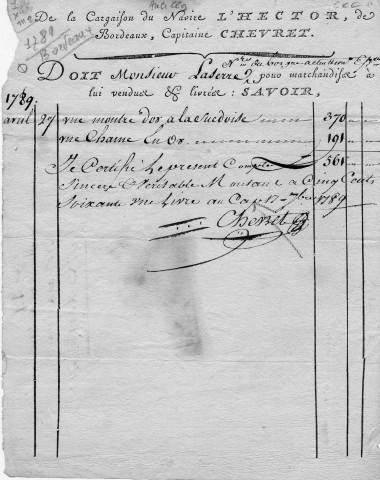 1789
Bordeaux
De la Cargaison du Navire L'HECTOR, de
Bordeaux, Capitaine CHEVRET.
DOIT Monsieur Laserre pour marchandises à
lui vendues & livrées : SAVOIR,
1789.
avril 27 une montre d'or a la suedoise 370
une Chaine En Or 191
Je Certifie Le present Compte 561
Sincere & Veritable Montant a Cinq Cents
Soixante une Livre au Cap 1789
Chevret